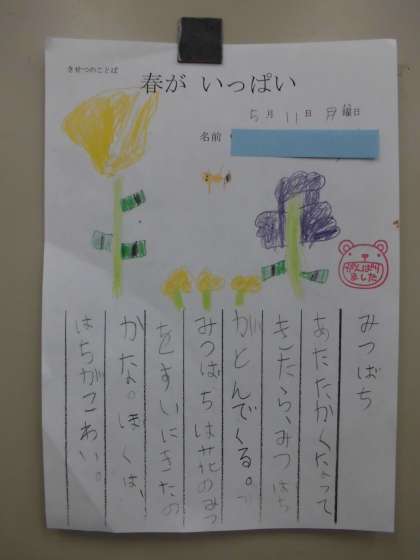 きせつのことば
春が いっぱい
5月11日月曜日
名前
がんばり
ました
みつばち
あたたかくなって
きたら、みつばち
がとんでくる。
みつばちは花のみつ
をすいにきたの
かな。ぼくは、
はちがこわい。